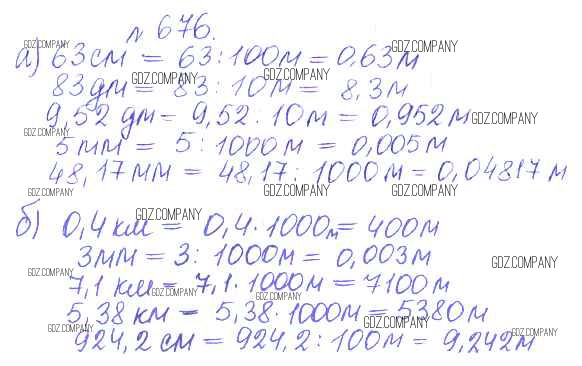 № 676.
GDZ.COMPANY GDZ.COMPANY
а) 63 см = 63 : 100 м = 0,63 м
GDZ.COMPANY GDZ.COMPANY
83 дм = 83 : 10 м = 8,3 м
9,52 дм = 9,52 : 10 м = 0,952 м GDZ.COMPANY
GDZ.COMPANY
5 мм = 5 : 1000 м = 0,005 м
48,17 мм = 48,17 : 1000 м = 0,04817 м
GDZ.COMPANY GDZ.COMPANY GDZ.COMPANY
GDZ.COMPANY
б) 0,4 км = 0,4 · 1000 м = 400 м
3 мм = 3 : 1000 м = 0,003 м GDZ.COMPANY
GDZ.COMPANY
7,1 км = 7,1 · 1000 м = 7100 м
GDZ.COMPANY GDZ.COMPANY
5,38 км = 5,38 · 1000 м = 5380 м
GDZ.COMPANY GDZ.COMPANY GDZ.COMPANY
924,2 см = 924,2 : 100 м = 9,242 м